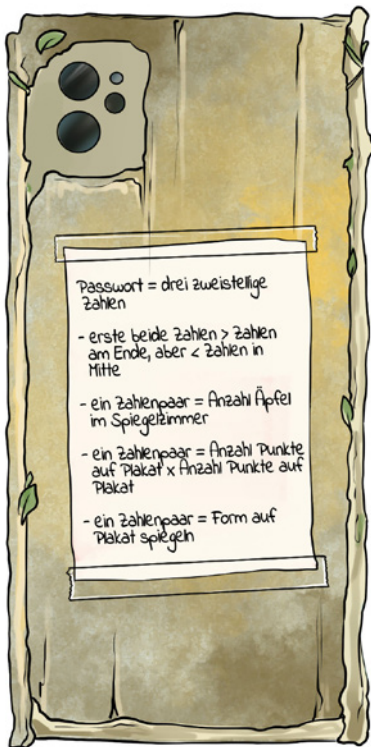 Passwort = drei zweistellige
Zahlen
- erste beide Zahlen > Zahlen
am Ende, aber < Zahlen in
Mitte
- ein Zahlenpaar = Anzahl Äpfel
im Spiegelzimmer
- ein Zahlenpaar = Anzahl Punkte
auf Plakat x Anzahl Punkte auf
Plakat
- ein Zahlenpaar = Form auf
Plakat spiegeln